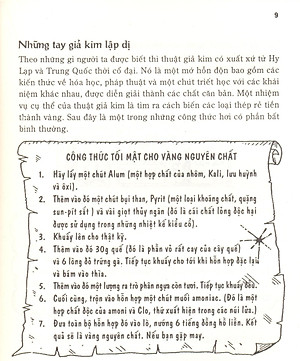 9
Những tay giả kim lập dị
Theo những gì người ta được biết thì thuật giả kim có xuất xứ từ Hy
Lạp và Trung Quốc thời cổ đại. Nó là một mớ hỗn độn bao gồm các
kiến thức về hóa học, pháp thuật và một chút triết học với các khái
niệm khác nhau, được diễn giải thành các chất căn bản. Một nhiệm
vụ cụ thể của thuật giả kim là tìm ra cách biến các loại thép rẻ tiền
thành vàng. Sau đây là một trong những công thức hơi có phần bất
bình thường.
CÔNG THỨC TỐI MẬT CHO VÀNG NGUYÊN CHẤT
1. Hãy lấy một chút Alum (một hợp chất của nhôm, Kali, lưu huỳnh
và ôxi).
2. Thêm vào đó một chút bụi than, Pyrit (một loại khoáng chất, quặng
sun-pit sắt) và vài giọt thủy ngân (đó là cái chất lỏng độc hại
được sử dụng trong những nhiệt kế kiểu cổ).
3. Khuấy lên cho thật kỹ.
4. Thêm vào đó 30g quế (đó là phần vỏ rất cay của cây quế)
và 6 lòng đỏ trứng gà. Tiếp tục khuấy cho tới khi hỗn hợp đặc lại
và bám vào thìa.
5. Thêm vào đó một lượng ra trò phân ngựa còn tươi. Tiếp tục khuấy đều.
6. Cuối cùng, trộn vào hỗn hợp một chút muối amoniac. (Đó là một
hợp chất của amoni và Clo, thứ xuất hiện trong các núi lửa.)
7. Đưa toàn bộ hỗn hợp đó vào lò, nướng 6 tiếng đồng hồ liền. Kết
quả sẽ là vàng nguyên chất. Nếu bạn gặp may.